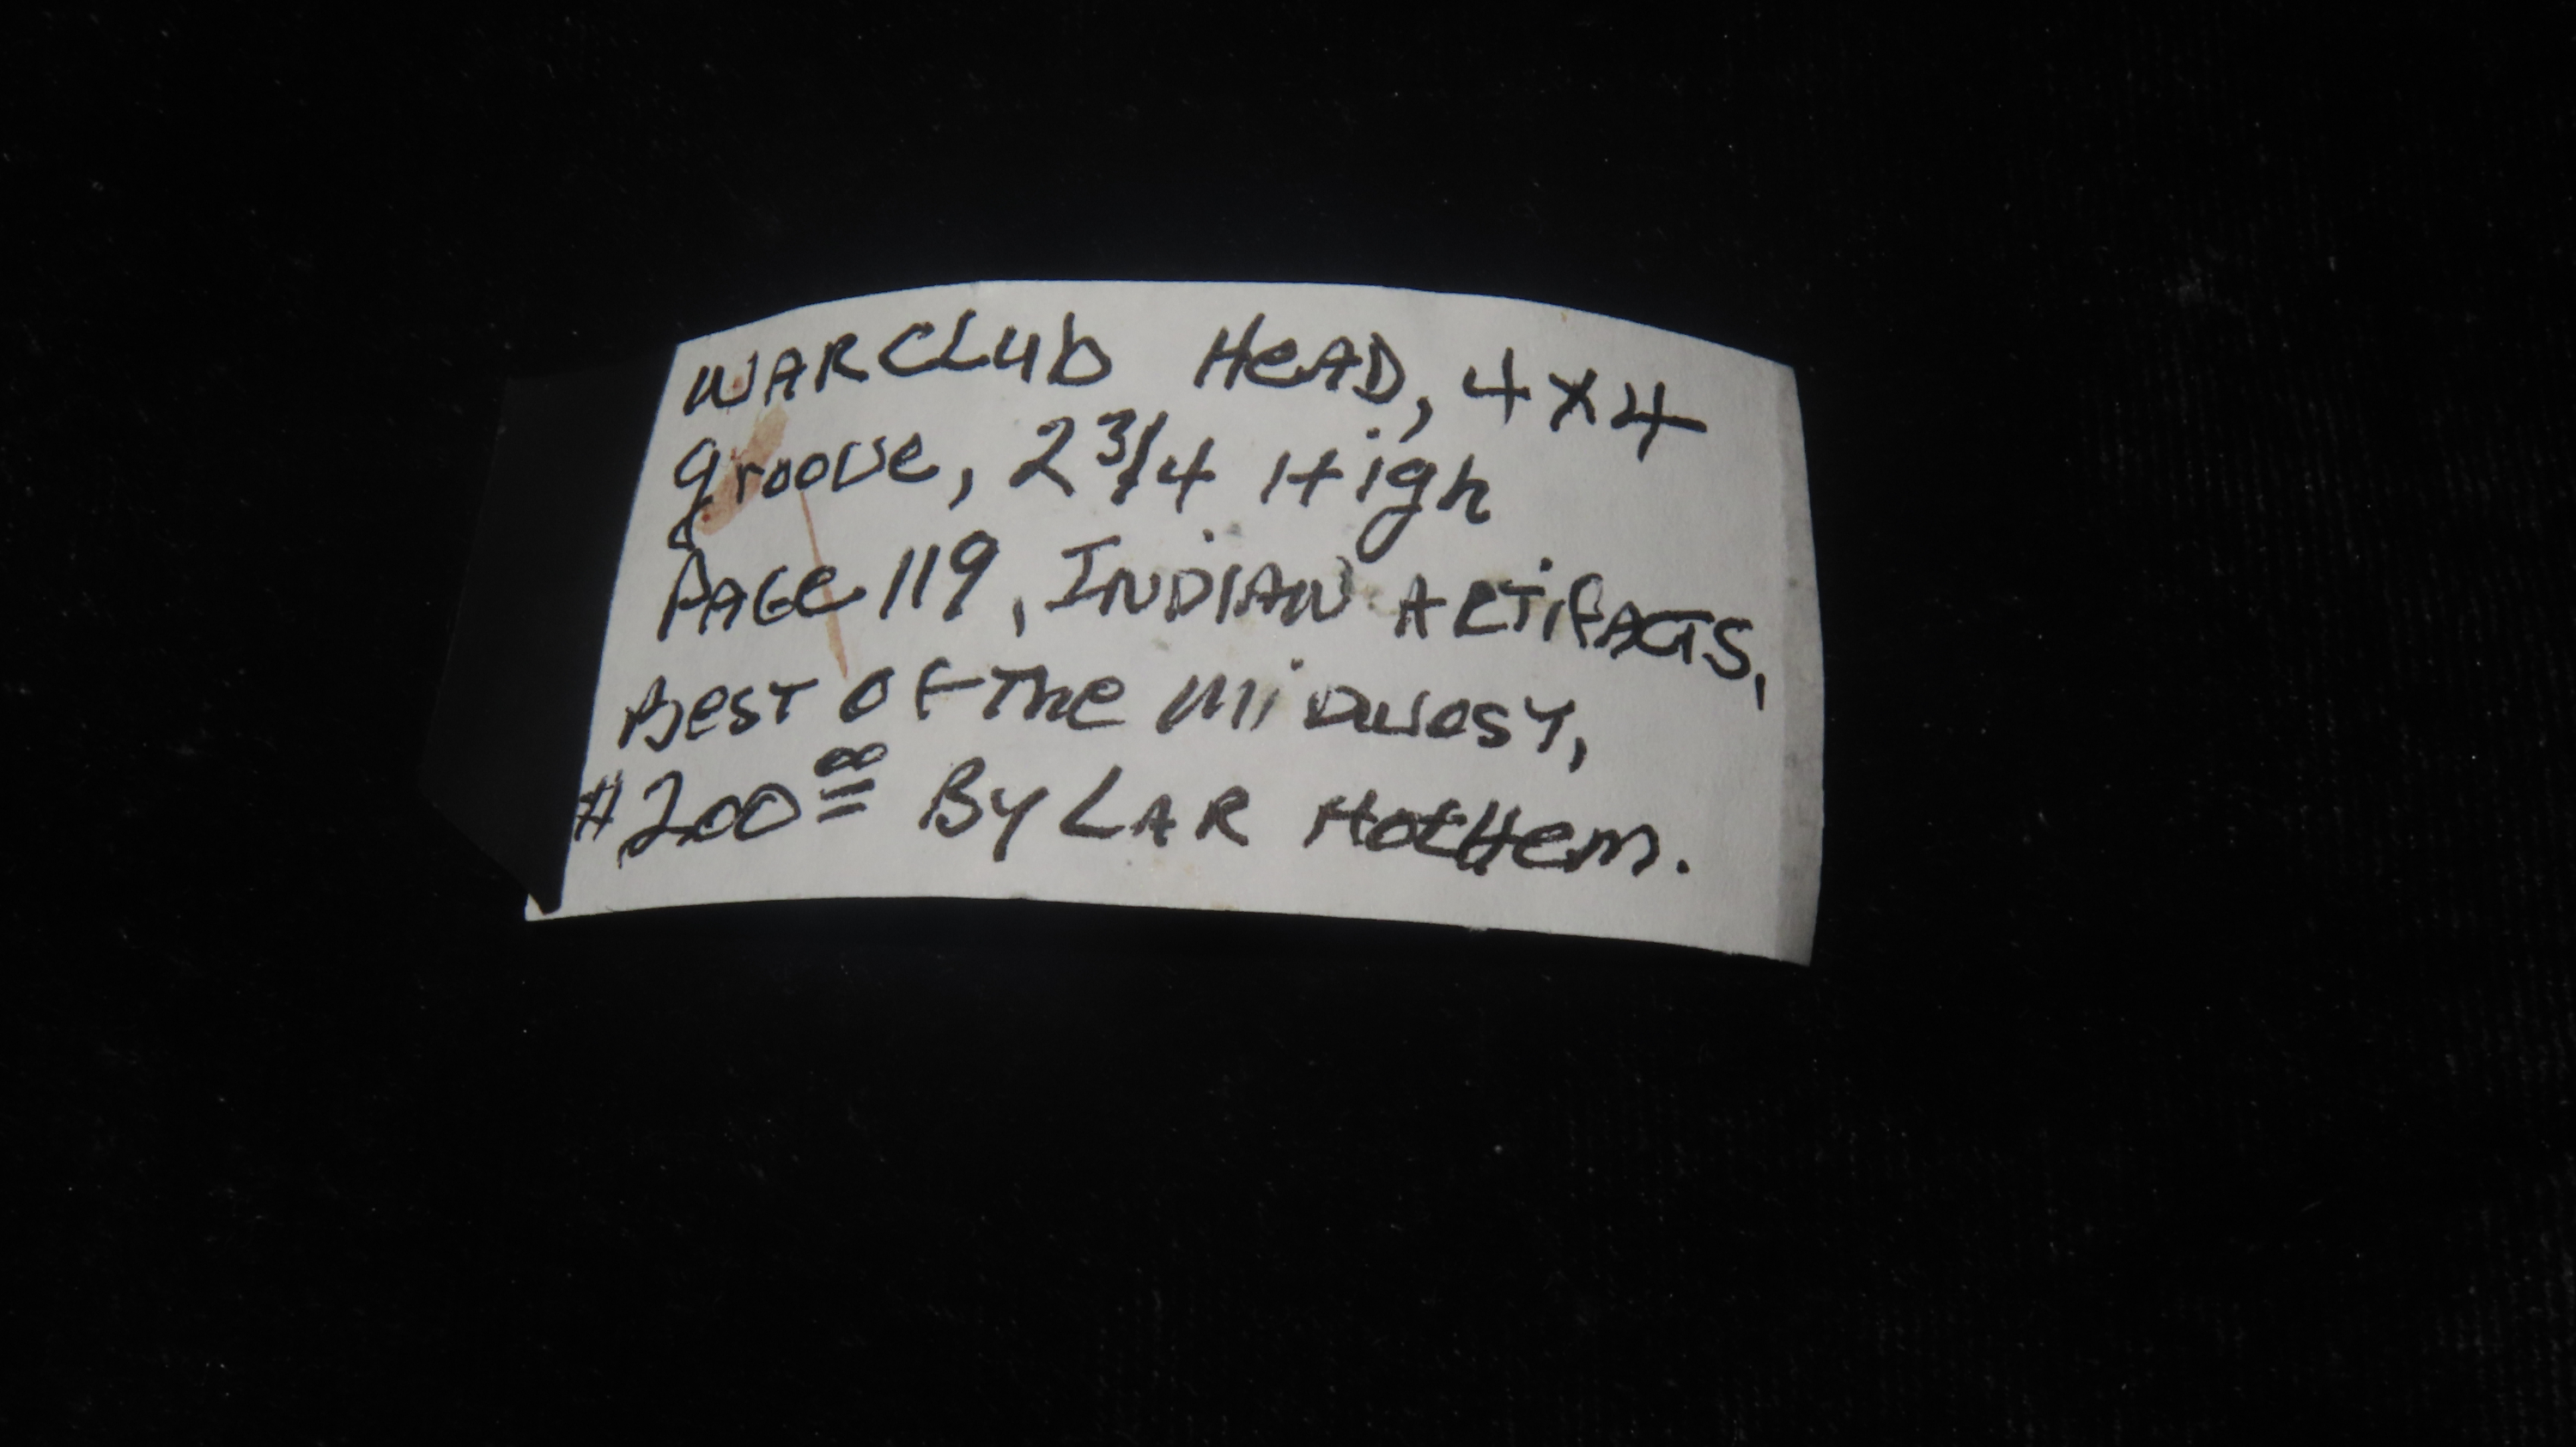 WARCLub HeAD, 4x4
groove, 2 3/4 High
PAGe 119, INDIAN ARTiFACTS,
Best OF The MiDwesT,
#200 00 By LAR HotHem.